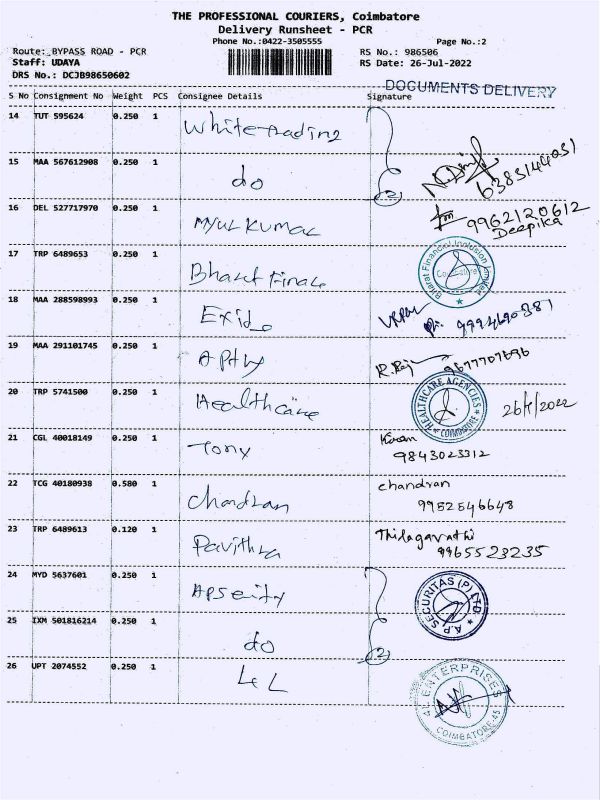 THE PROFESSIONAL COURIERS, Coimbatore
Delivery Runsheet - PCR
Phone No.:0422-3505555 Page No.:2
Route: BYPASS ROAD - PCR RS No.: 986506
Staff: UDAYA RS Date: 26-Jul-2022
DRS No.: DCJB98650602
DOCUMENTS DELIVERY
S No Consignment No Weight PCS Consignee Details Signature
14 TUT 595624 0.250 1 White trading
15 MAA 567612908 0.250 1 do 2 6383144031
16 DEL 527717970 0.250 1 Mylkumar 9962120612
Deepika
17 TRP 6489653 0.250 1 Bharat Finance Bharat Financial Inclusion Limited Coimbatore
18 MAA 288598993 0.250 1 Exide
19 MAA 291101745 0.250 1 R. Raj 9677707696
20 TRP 5741500 0.250 1 Healthcare HEALTHCARE AGENCIES COIMBATORE 26/7/2022
21 CGL 40018149 0.250 1 Tony Kiran
9843023312
22 TCG 40180938 0.580 1 Chandran chandran
9952546648
23 TRP 6489613 0.120 1 Pavithra Thilagavathi
9965523235
24 MYD 5637601 0.250 1 A.P. SECURITAS (P) LTD
25 IXM 501816214 0.250 1 do 2
26 UPT 2074552 0.250 1 4L 4L ENTERPRISES COIMBATORE-45